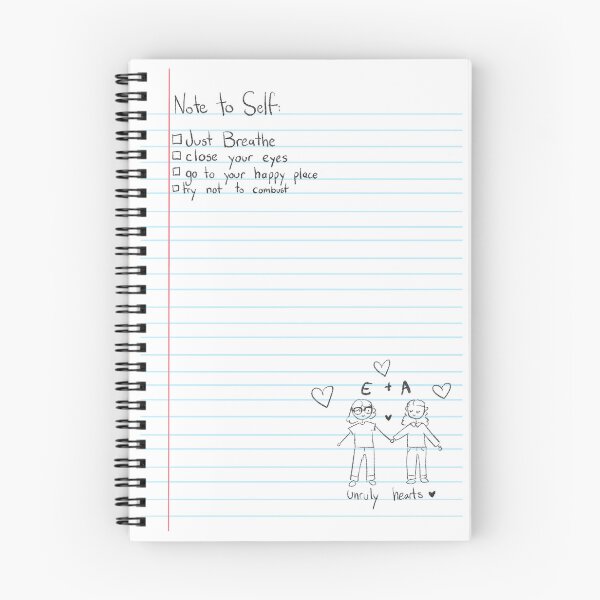 Note to Self:
Just Breathe
close your eyes
go to your happy place
try not to combust
E + A
unruly hearts